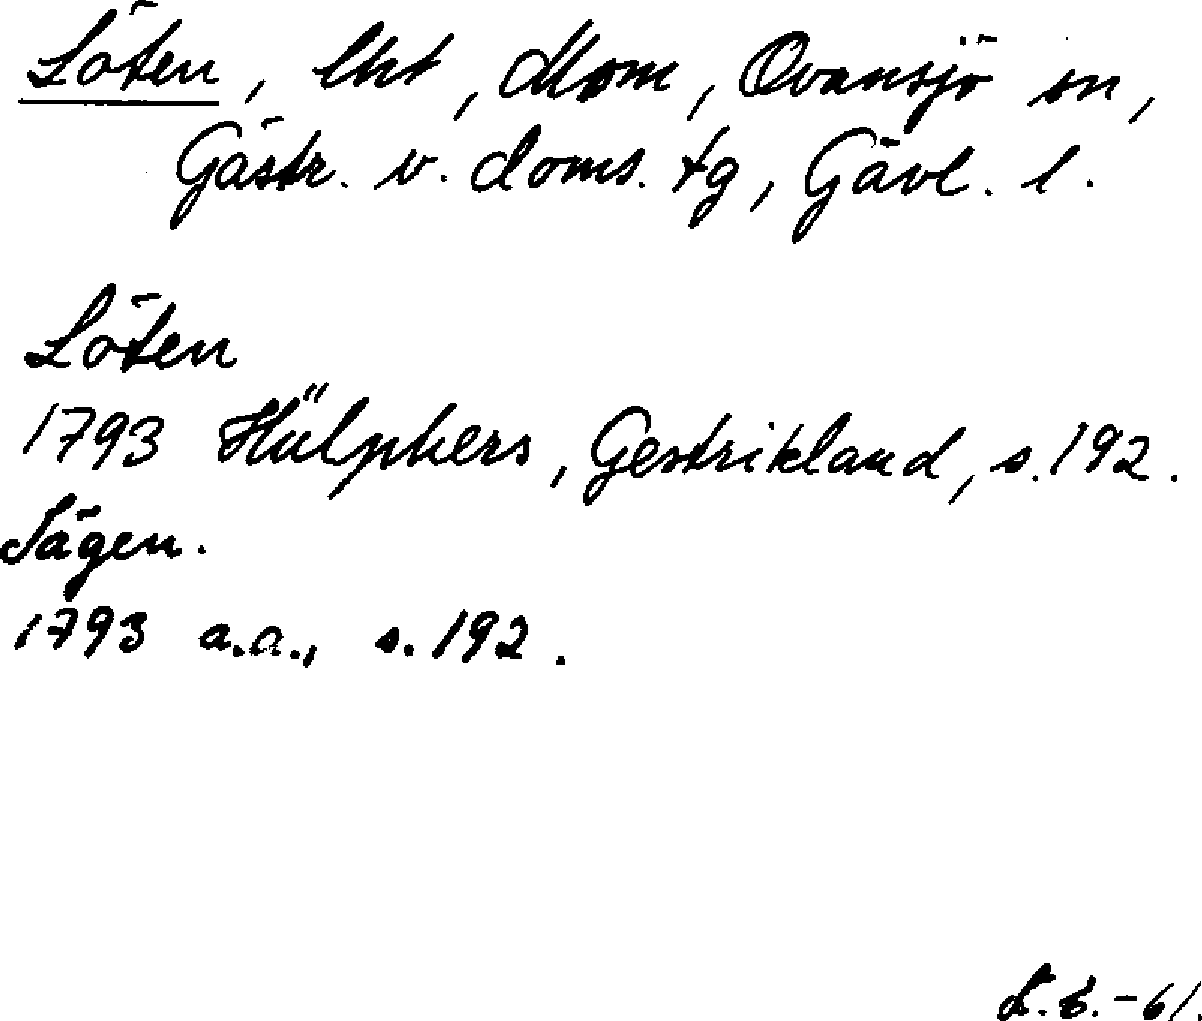 Löten, lht, Mom, Ovansjö sn,
Gästr. v. doms. tg, Gävl. l.
Löten
1793 Hülphers, Gestrikland, s. 192.
Sägen.
1793 a.a., s. 192.
-61.